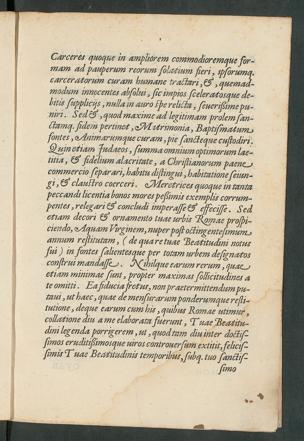 Carceres quoque in ampliorem commodioremque for-
mam ad pauperum reorum solatium fieri, ipsorumq.
carceratorum curam humane tractari, &, quemad-
modum innocentes absolui, sic impios sceleratosque de-
bitis supplicijs, nulla in auro spe relicta, seuerissime pu-
niri. Sed &, quod maxime ad legitimam prolem san-
ctamq. fidem pertinet, Matrimonia, Baptismatum
fontes, Animarumque curam, pie sancteque custodiri.
Quinetiam Iudaeos, summa omnium optimorum lae-
titia, & fidelium alacritate, a Christianorum paene
commercio separari, habitu distingui, habitatione seiun-
gi, & claustro coerceri. Meretrices quoque in tanta
peccandi licentia bonos mores pessimis exemplis corrum-
pentes, relegari & concludi imperasse & effecisse. Sed
etiam decori & ornamento tuae urbis Romae prospi-
ciendo, Aquam Virginem, nuper post octingentesimum
annum restitutam, (de qua re tuae Beatitudini notus
fui) in fontes salientesque per totam urbem designatos
construi mandasse. Nobilque earum rerum, quae
etiam minimae sint, propter maximas sollicitudines a
te omitti. Ea fiducia fretus, non praetermittendum pu-
taui, ut haec, quae de mensurarum ponderumque resti-
tutione, deque earum cum his, quibus Romae utimur,
collatione diu a me elaborata fuerunt, Tuae Beatitu-
dini legenda porrigerem, ut, quod tam diu inter doctis-
simos eruditissimosque uiros controuersum extitit, felicis-
simis Tuae Beatitudinis temporibus, subq. tuo sanctis-
simo